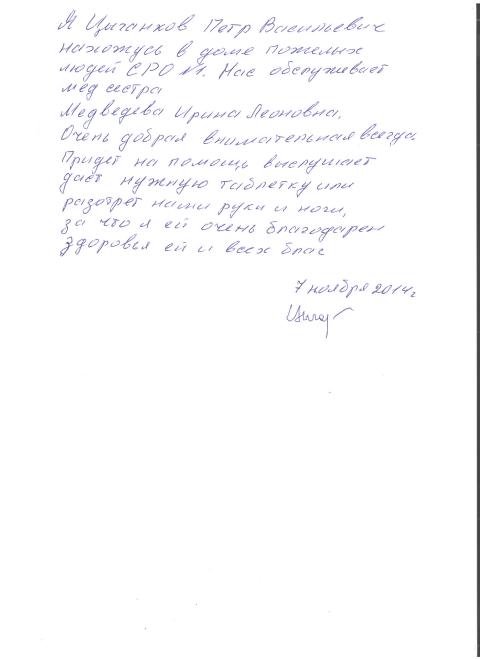 Я Цыганков Петр Васильевич
нахожусь в доме пожелых
людей СРО №1. Нас обслуживает
мед сестра
Медведева Ирина Леоновна.
Очень добрая внимательная всегда.
Придет на помощь выслушает
даёт нужную таблетку или
разотрет наши руки и ноги,
за что я ей очень благодарен
Здоровья ей и всех благ
7 ноября 2014г